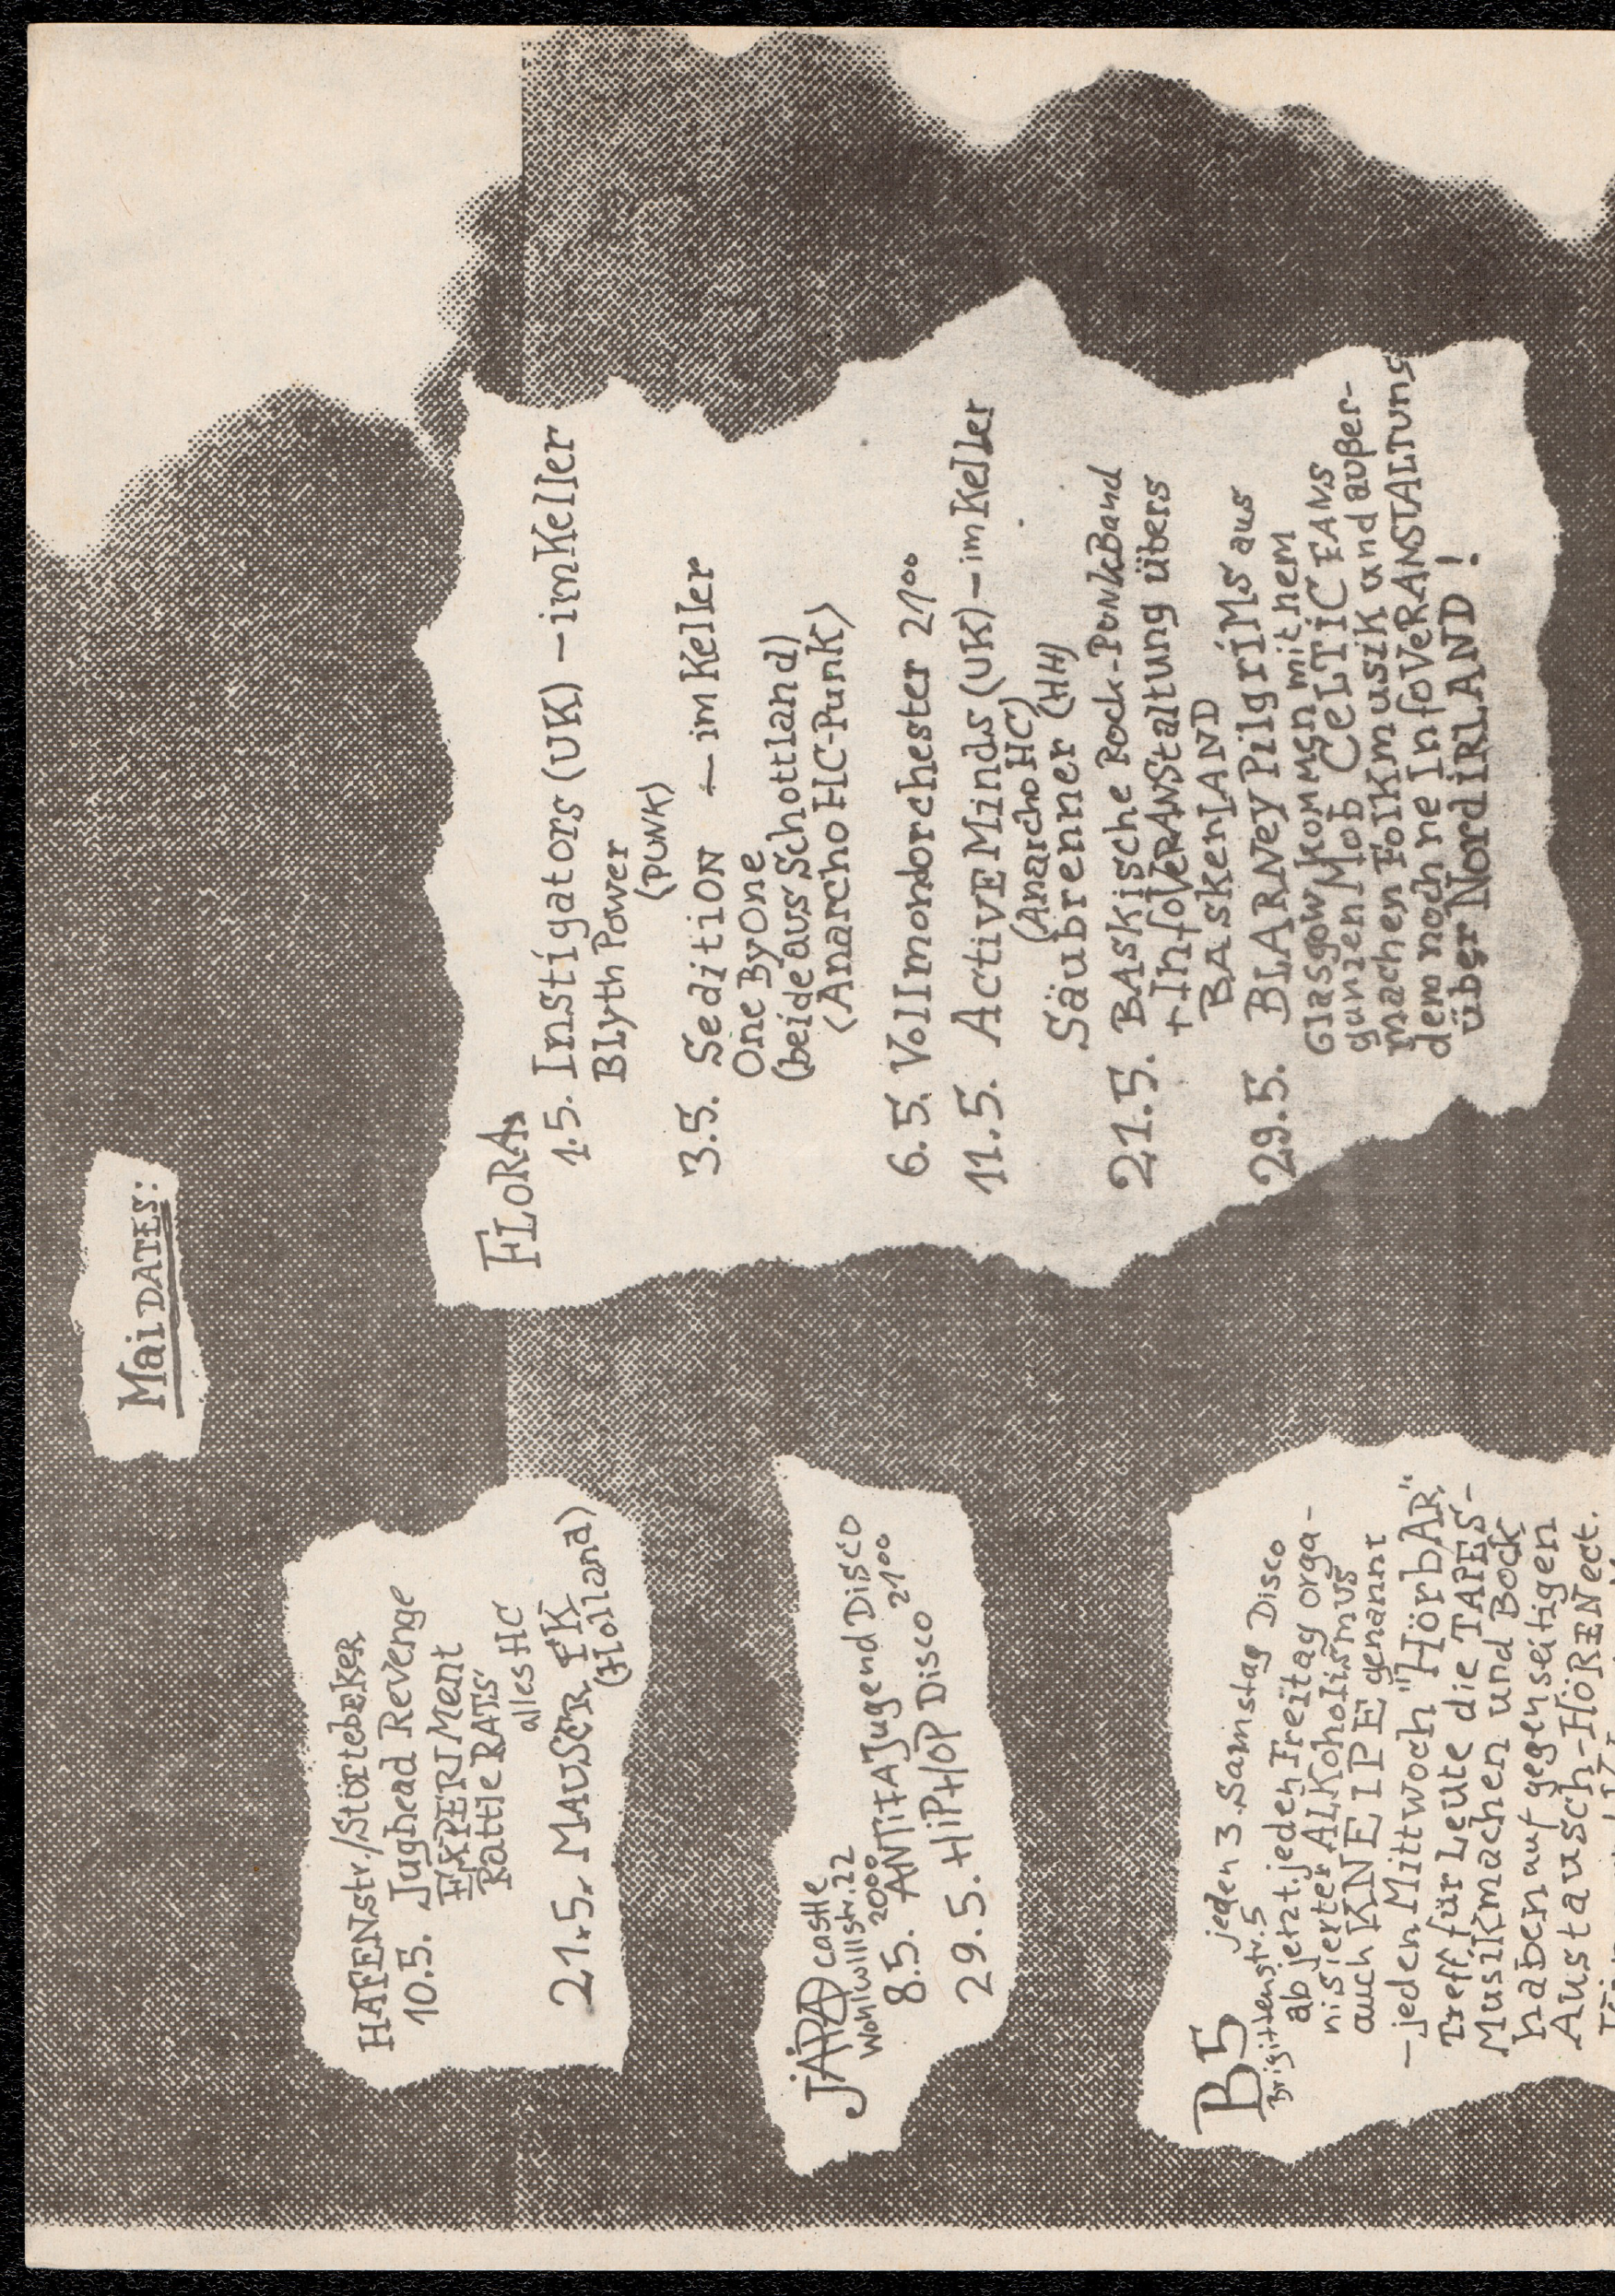 Mai DATES:
HAFENstr/Störtebeker
10.5. Jughead Revenge
EXPERIMent
Rattle RATS
alles HC
21.5. MAUSER FK
(Holland)
JÄPA castle
Wohlwillstr. 22
8.5. 20⁰⁰ ANTIFA Jugend Disco
29.5. HiPHOP Disco 21⁰⁰
B5 jeden 3. Samstag Disco
Brigittenstr. 5
ab jetzt jeden Freitag orga-
nisierter ALKoholismus
auch KNEIPE genannt
– jeden Mittwoch "HörbAR"
Treff für Leute die TAPES-
Musik machen und Bock
haben auf gegenseitigen
Austausch-HöREN ect.
FLORA
1.5. Instigators (UK) – im Keller
BLyth Power
(PUNK)
3.5. Sedition – im Keller
One By One
(beide aus Schottland)
(Anarcho HC-Punk)
6.5. Vollmondorchester 21⁰⁰
11.5. ActivE Minds (UK) – im Keller
(Anarcho HC)
Säubrenner (HH)
21.5. BAskische Rock-Punk Band
+ InfoVeRANStaltung übers
BAskenLAND
29.5. BLARNey PilgriMs aus
Glasgow kommen mit hem
ganzen Mob CeLTiC FANS
machen Folkmusik und außer-
dem noch ne InfoVeRANSTALTung
über NordiRLAND!